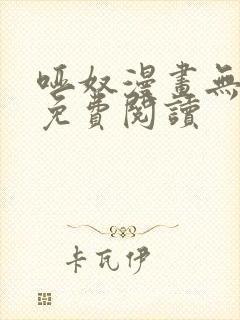 哑奴漫畫無
免費閱讀
卡瓦伊